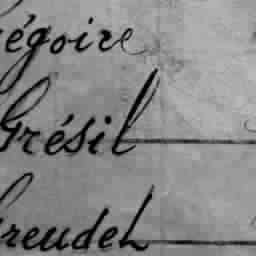 égoire
Grésil
Greudel